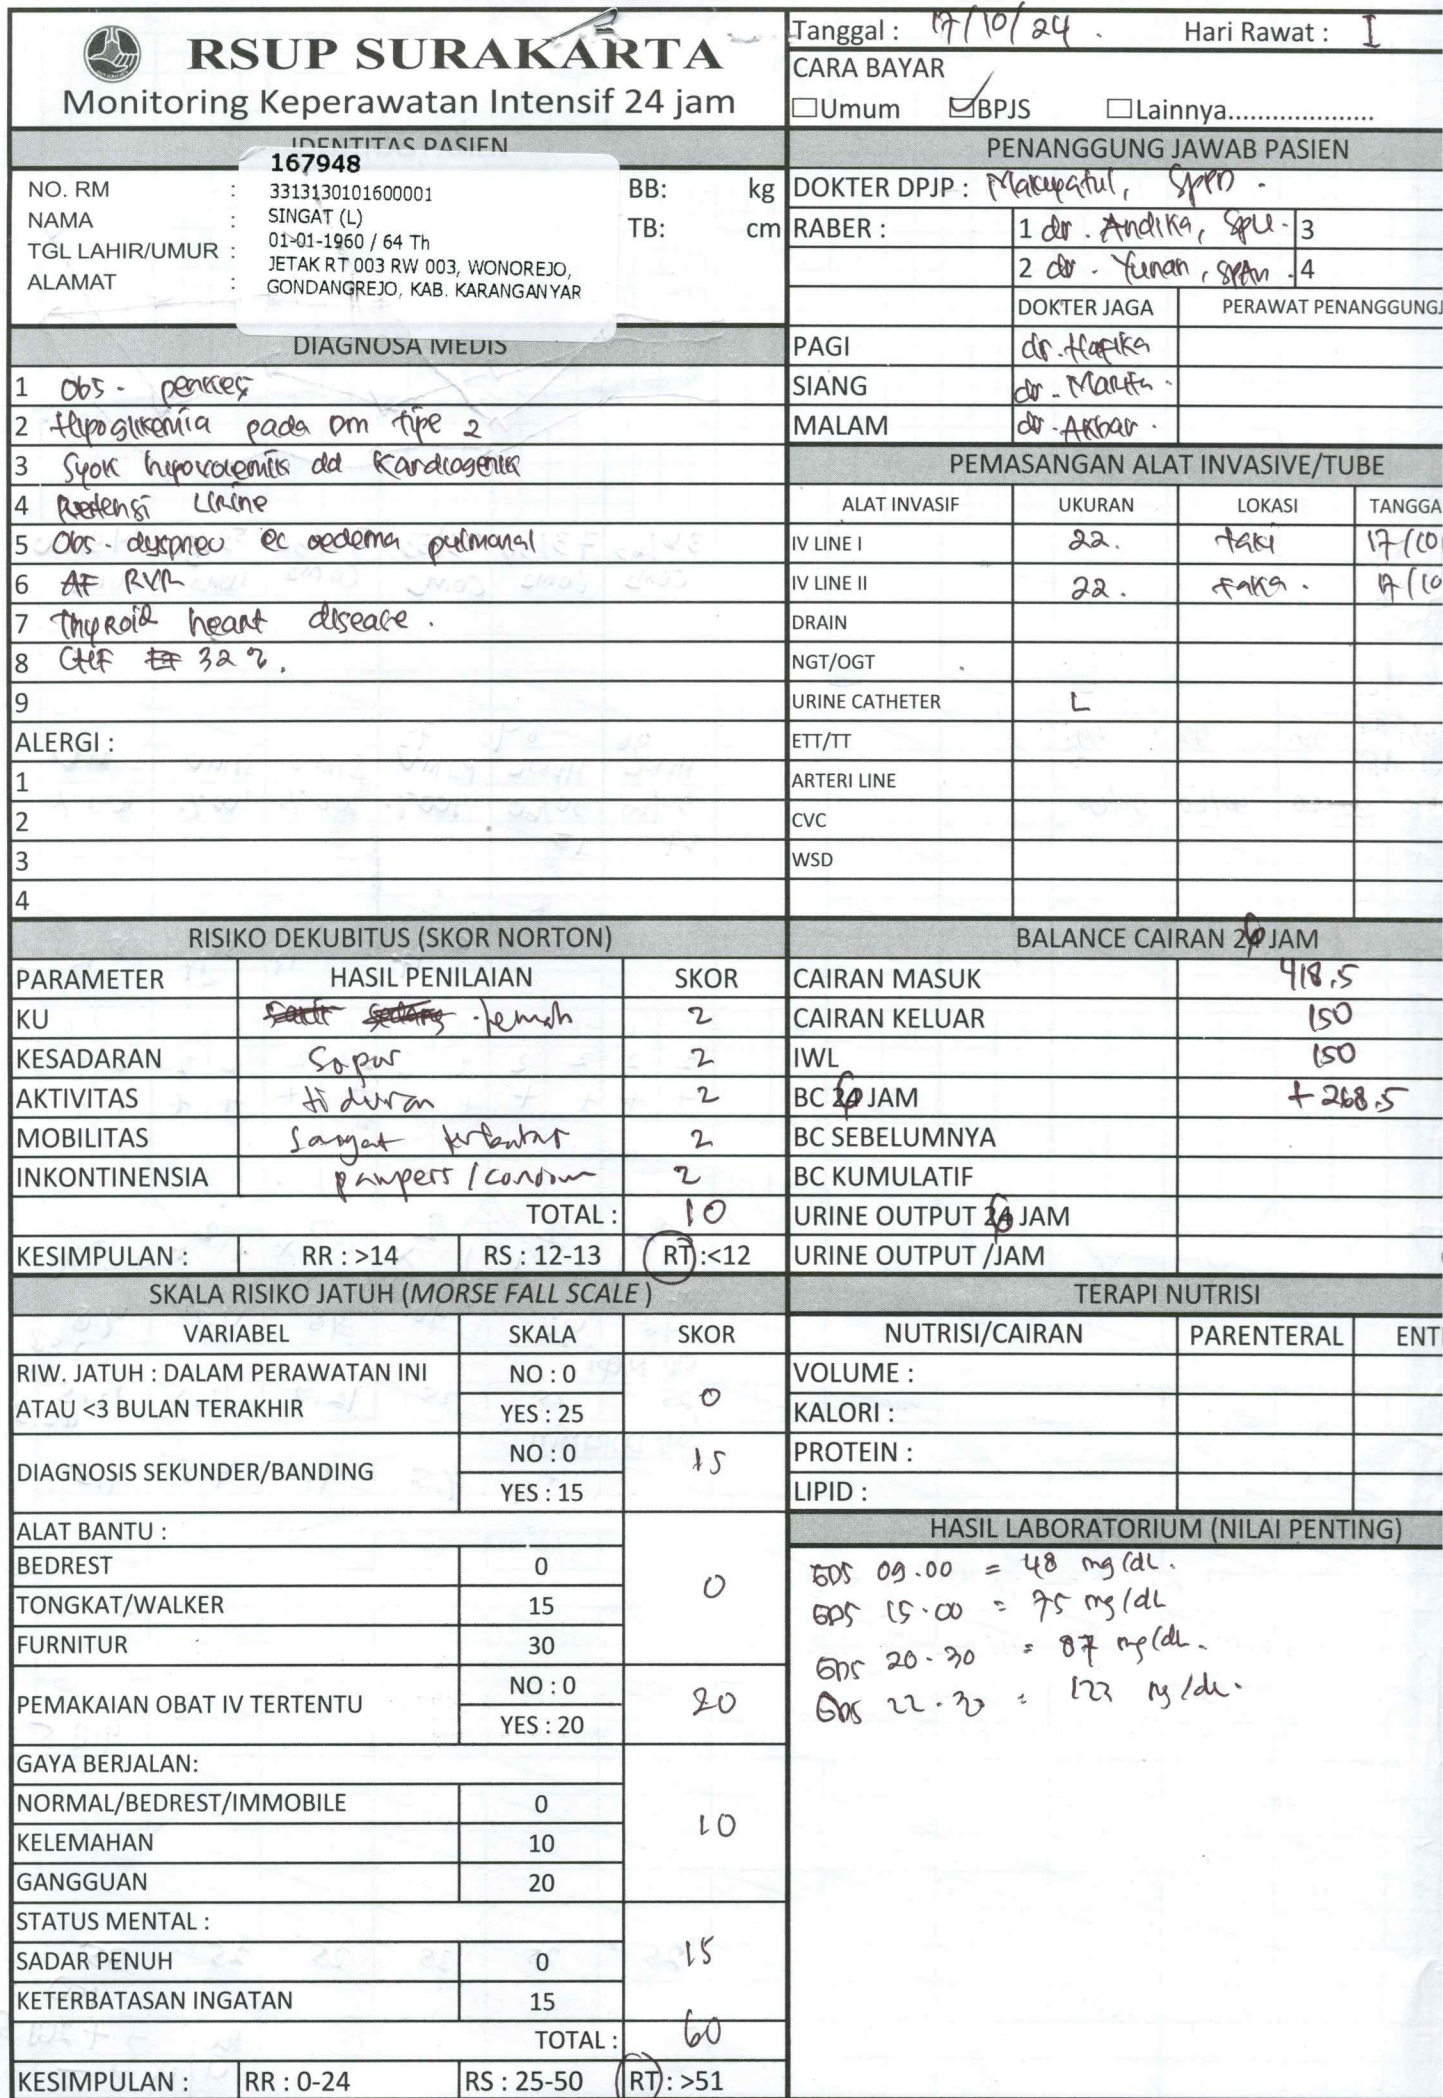 RSUP SURAKARTA
Monitoring Keperawatan Intensif 24 jam
Tanggal : 17/10/24 . Hari Rawat : I
CARA BAYAR
☐Umum ☑BPJS ☐Lainnya....................
IDENTITAS PASIEN
167948
NO. RM : 3313130101600001
NAMA : SINGAT (L)
TGL LAHIR/UMUR : 01-01-1960 / 64 Th
ALAMAT : JETAK RT 003 RW 003, WONOREJO,
GONDANGREJO, KAB. KARANGANYAR
BB: kg
TB: cm
PENANGGUNG JAWAB PASIEN
DOKTER DPJP : SpPD .
RABER : 1 dr. Andika, 3
2 dr. Yunan, SpAn . 4
DOKTER JAGA PERAWAT PENANGGUNGJ
PAGI dr. Hafika
SIANG dr.
MALAM dr. Akbar .
DIAGNOSA MEDIS
1 Obs -
2 Hipoglikemia pada Dm tipe 2
3 Syok hipovolemik dd Kardiogenik
4 Retensi Urine
5 Obs - dyspneu ec oedema pulmonal
6 AF RVR
7 Thyroid heart disease .
8 CHF EF 32 %.
9
ALERGI :
1
2
3
4
PEMASANGAN ALAT INVASIVE/TUBE
ALAT INVASIF UKURAN LOKASI TANGGA
IV LINE I 22. taki 17/10
IV LINE II 22. taka . 17/10
DRAIN
NGT/OGT
URINE CATHETER L
ETT/TT
ARTERI LINE
CVC
WSD
RISIKO DEKUBITUS (SKOR NORTON)
PARAMETER HASIL PENILAIAN SKOR
KU lemah 2
KESADARAN Sopor 2
AKTIVITAS tiduran 2
MOBILITAS Sangat terbatas 2
INKONTINENSIA pampers / 2
TOTAL : 10
KESIMPULAN : RR : >14 RS : 12-13 RT :<12
BALANCE CAIRAN 26 JAM
CAIRAN MASUK 418,5
CAIRAN KELUAR 150
IWL 150
BC 6 JAM + 268,5
BC SEBELUMNYA
BC KUMULATIF
URINE OUTPUT 6 JAM
URINE OUTPUT /JAM
SKALA RISIKO JATUH (MORSE FALL SCALE )
VARIABEL SKALA SKOR
RIW. JATUH : DALAM PERAWATAN INI NO : 0
ATAU <3 BULAN TERAKHIR YES : 25 0
DIAGNOSIS SEKUNDER/BANDING NO : 0 15
YES : 15
ALAT BANTU :
BEDREST 0 0
TONGKAT/WALKER 15
FURNITUR 30
PEMAKAIAN OBAT IV TERTENTU NO : 0 20
YES : 20
GAYA BERJALAN:
NORMAL/BEDREST/IMMOBILE 0
KELEMAHAN 10 10
GANGGUAN 20
STATUS MENTAL :
SADAR PENUH 0 15
KETERBATASAN INGATAN 15
TOTAL : 60
KESIMPULAN : RR : 0-24 RS : 25-50 RT : >51
TERAPI NUTRISI
NUTRISI/CAIRAN PARENTERAL ENT
VOLUME :
KALORI :
PROTEIN :
LIPID :
HASIL LABORATORIUM (NILAI PENTING)
GDS 09.00 = 48 mg/dL.
GDS 15.00 = 75 mg/dL
GDS 20.30 = 87 mg/dL.
GDS 22.30 = 123 mg/dL.